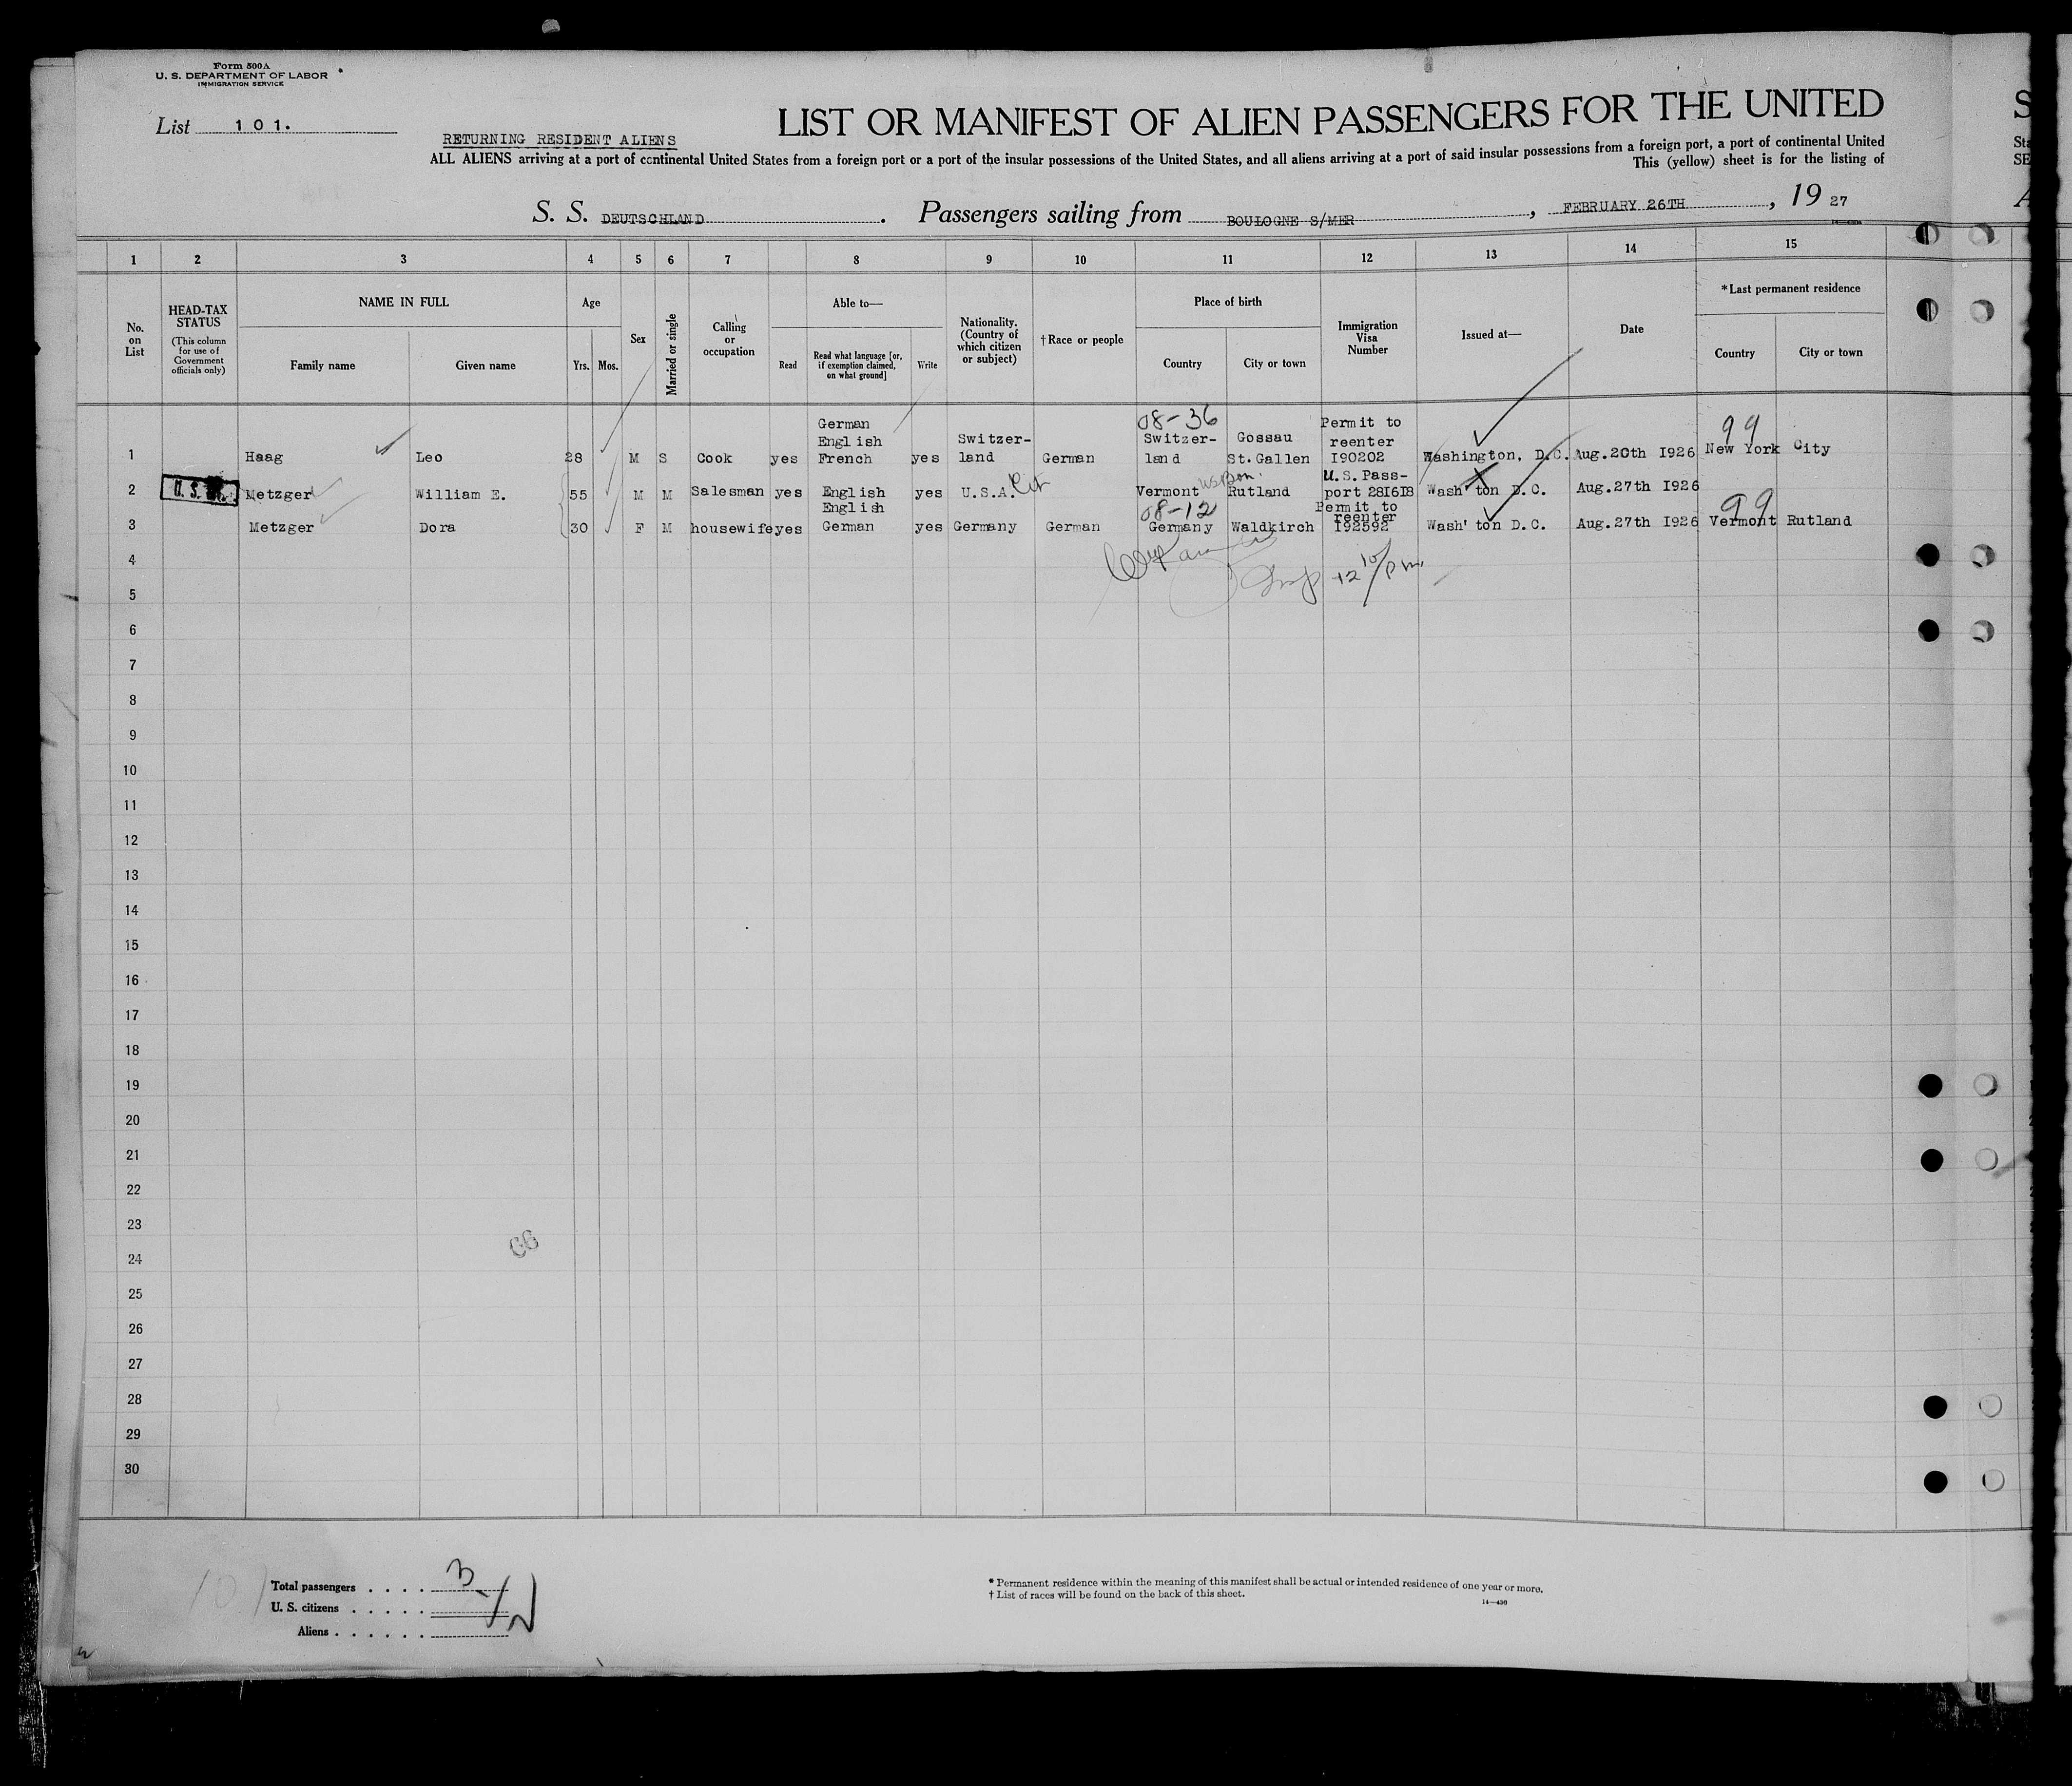 Form 500A
U. S. DEPARTMENT OF LABOR
IMMIGRATION SERVICE
List 101.
LIST OR MANIFEST OF ALIEN PASSENGERS FOR THE UNITED
RETURNING RESIDENT ALIENS
ALL ALIENS arriving at a port of continental United States from a foreign port or a port of the insular possessions of the United States, and all aliens arriving at a port of said insular possessions from a foreign port, a port of continental United
This (yellow) sheet is for the listing of
S. S. DEUTSCHLAND. Passengers sailing from BOULOGNE S/MER, FEBRUARY 26TH, 19 27
1 2 3 4 5 6 7 8 9 10 11 12 13 14 15
No. on List
HEAD-TAX STATUS
(This column for use of Government officials only)
NAME IN FULL
Family name Given name
Age
Yrs. Mos.
Sex
Married or single
Calling or occupation
Able to—
Read
Read what language [or, if exemption claimed, on what ground]
Write
Nationality. (Country of which citizen or subject)
†Race or people
Place of birth
Country City or town
Immigration Visa Number
Issued at—
Date
*Last permanent residence
Country City or town
08-36
99
1 Haag Leo 28 M S Cook yes German English French yes Switzer-land German Switzer-land Gossau St.Gallen Permit to reenter I90202 Washington, D.C. Aug.20th I926 New York City
2 U.S. Metzger William E. 55 M M Salesman yes English yes U.S.A. Cit Vermont US Born Rutland U.S. Pass-port 28I6I8 Wash'ton D.C. Aug.27th I926
08-12
99
3 Metzger Dora 30 F M housewife yes English German yes Germany German Germany Waldkirch Permit to reenter I92592 Wash'ton D.C. Aug.27th I926 Vermont Rutland
4
5
6
7
8
9
10
11
12
13
14
15
16
17
18
19
20
21
22
23
24
25
26
27
28
29
30
66
101
Total passengers . . . . 3
U. S. citizens . . . . . 1
Aliens . . . . . . 2
* Permanent residence within the meaning of this manifest shall be actual or intended residence of one year or more.
† List of races will be found on the back of this sheet.
14—430